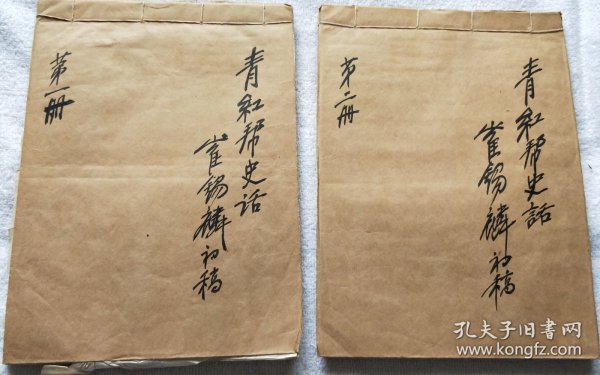 青红帮史话
崔锡麟初稿
第一册
青红帮史话
崔锡麟初稿
第二册
孔夫子旧书网
www.kongfz.com